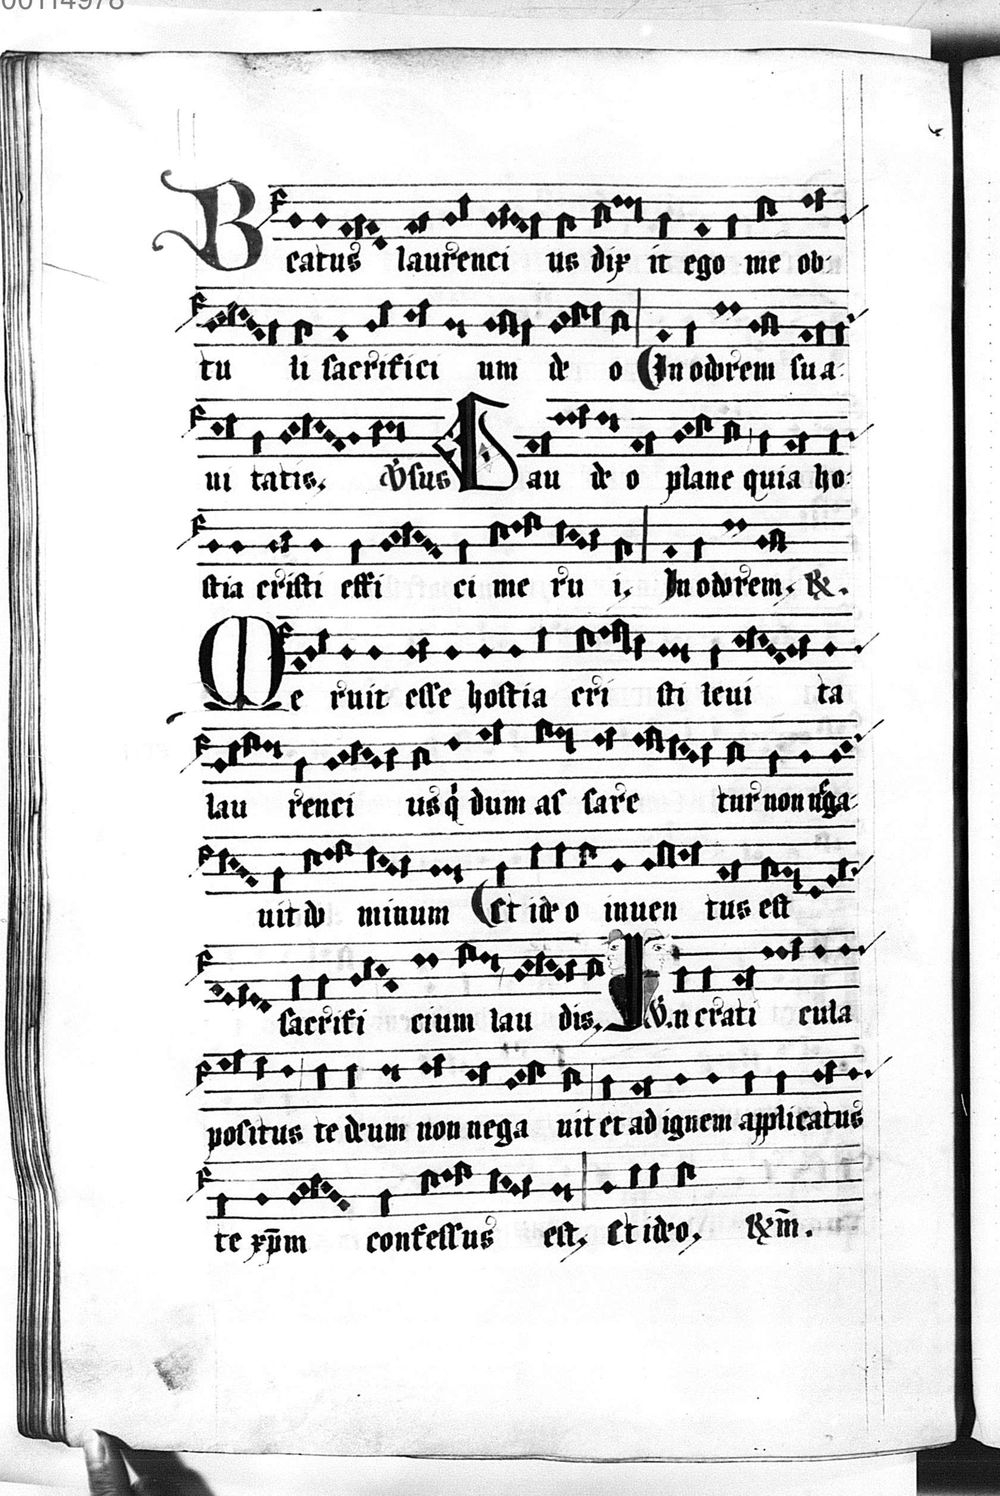 00114978
Beatus laurenci us dix it ego me ob-
tu li sacrifici um de o In odorem sua-
ui tatis, V̓sus Gau de o plane quia ho-
stia cristi effi ci me ru i, In odorem, R.
Me ruit esse hostia cri sti leui ta
lau renci us q̓ dum as sare tur non nega-
uit do minum Et ideo inuen tus est
sacrifi cium lau dis, V̓. In crati cula
positus te deum non nega uit et ad ignem applicatus
te xp̄m confessus est, Et ideo, Rm̄.